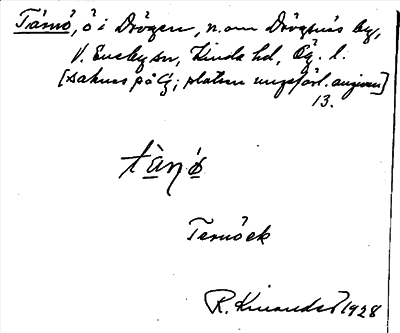 Tärnö, ö i Drögen, n. om Drögsnäs by,
V. Eneby sn, Kinda hd, Ög. l.
[saknas på G; platsen ungefärl. angiven]
13.
tä̀ṇö
Ternöek
1928